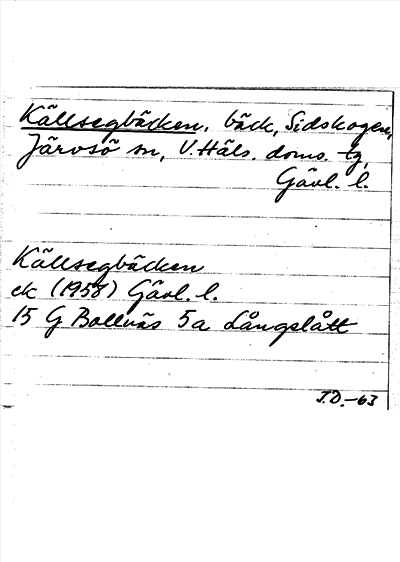 Källsegbäcken, bäck, Sidskogen,
Järvsö sn, V. Häls. doms. tg,
Gävl. l.
Källsegbäcken
ek (1958) Gävl. l.
15 G Bollnäs 5a Långslått
J.D.-63